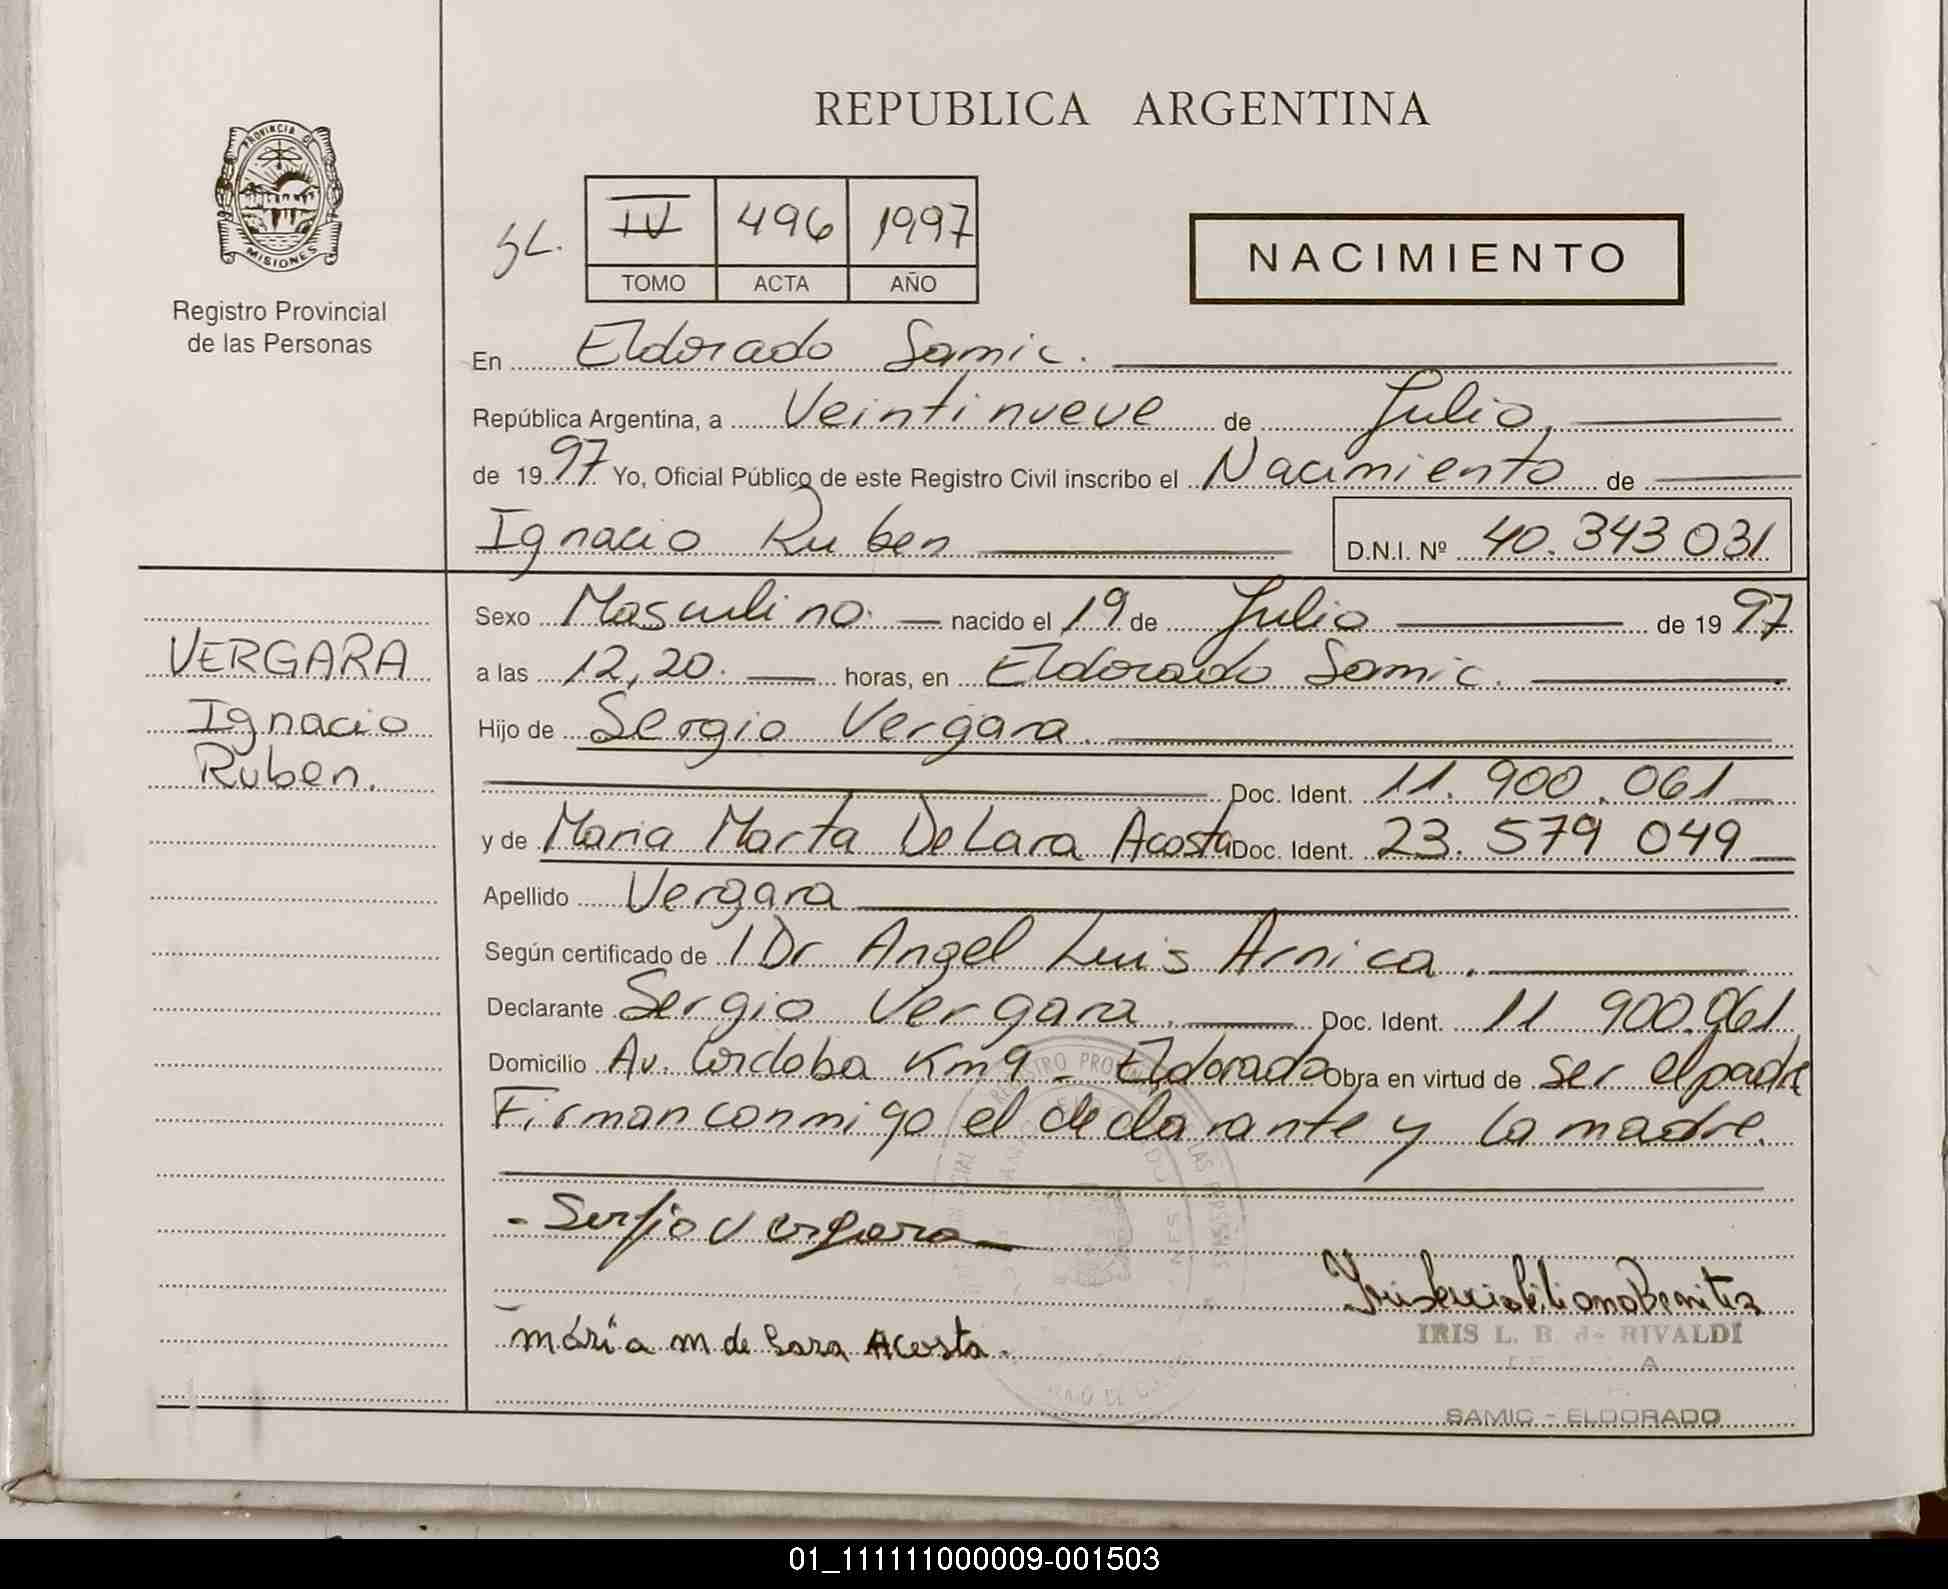 REPUBLICA ARGENTINA
PROVINCIA DE
MISIONES
Registro Provincial
de las Personas
SL.
IV 496 1997
TOMO ACTA AÑO
NACIMIENTO
En Eldorado Samic.
República Argentina, a Veintinueve de Julio
de 1997 Yo, Oficial Público de este Registro Civil inscribo el Nacimiento de
Ignacio Ruben D.N.I. Nº 40.343 031
VERGARA
Ignacio
Ruben.
Sexo Masculino. nacido el 19 de Julio de 1997
a las 12,20. horas, en Eldorado Samic.
Hijo de Sergio Vergara.
Doc. Ident. 11.900.061
y de Maria Marta De Lara Acosta Doc. Ident. 23.579 049
Apellido Vergara
Según certificado de l Dr Angel Luis Arnica.
Declarante Sergio Vergara. Doc. Ident. 11 900.061
Domicilio Av. Cordoba Km 9 - Eldorado Obra en virtud de ser el padre
Firman conmigo el declarante y la madre.
- Sergio Vergara
maria m de Lara Acosta.
IRIS L. B. de RIVALDI
SAMIC - ELDORADO
01_111111000009-001503